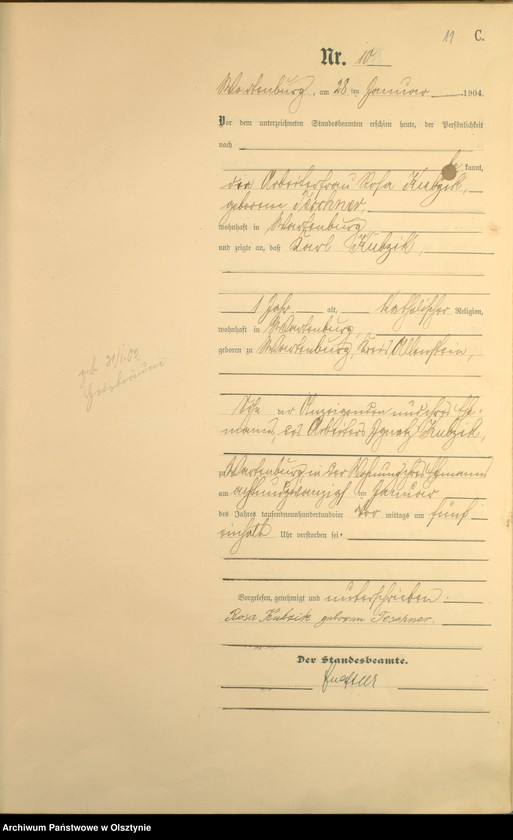 11 C.
Nr. 10
Wartenburg, am 28 ten Januar 1904.
Vor dem unterzeichneten Standesbeamten erschien heute, der Persönlichkeit
nach
be kannt,
die Arbeiterfrau Rosa Kubzik,
geborene Teschner,
wohnhaft in Wartenburg
und zeigte an, daß Karl Kubzik,
1 Jahr alt, katholischer Religion,
wohnhaft in Wartenburg,
geboren zu Wartenburg, Kreis Allenstein,
Sohn der Anzeigenden und ihres Ehe-
manns, des Arbeiters Ignatz Kubzik,
zu Wartenburg in der Wohnung ihres Ehemanns
am achtundzwanzigsten Januar
des Jahres tausendneunhundertundvier Vor mittags um fünf
einhalb Uhr verstorben sei.
Vorgelesen, genehmigt und unterschrieben.
Rosa Kubzik geborene Teschner.
Der Standesbeamte.
geb. 31/1.02
Archiwum Państwowe w Olsztynie